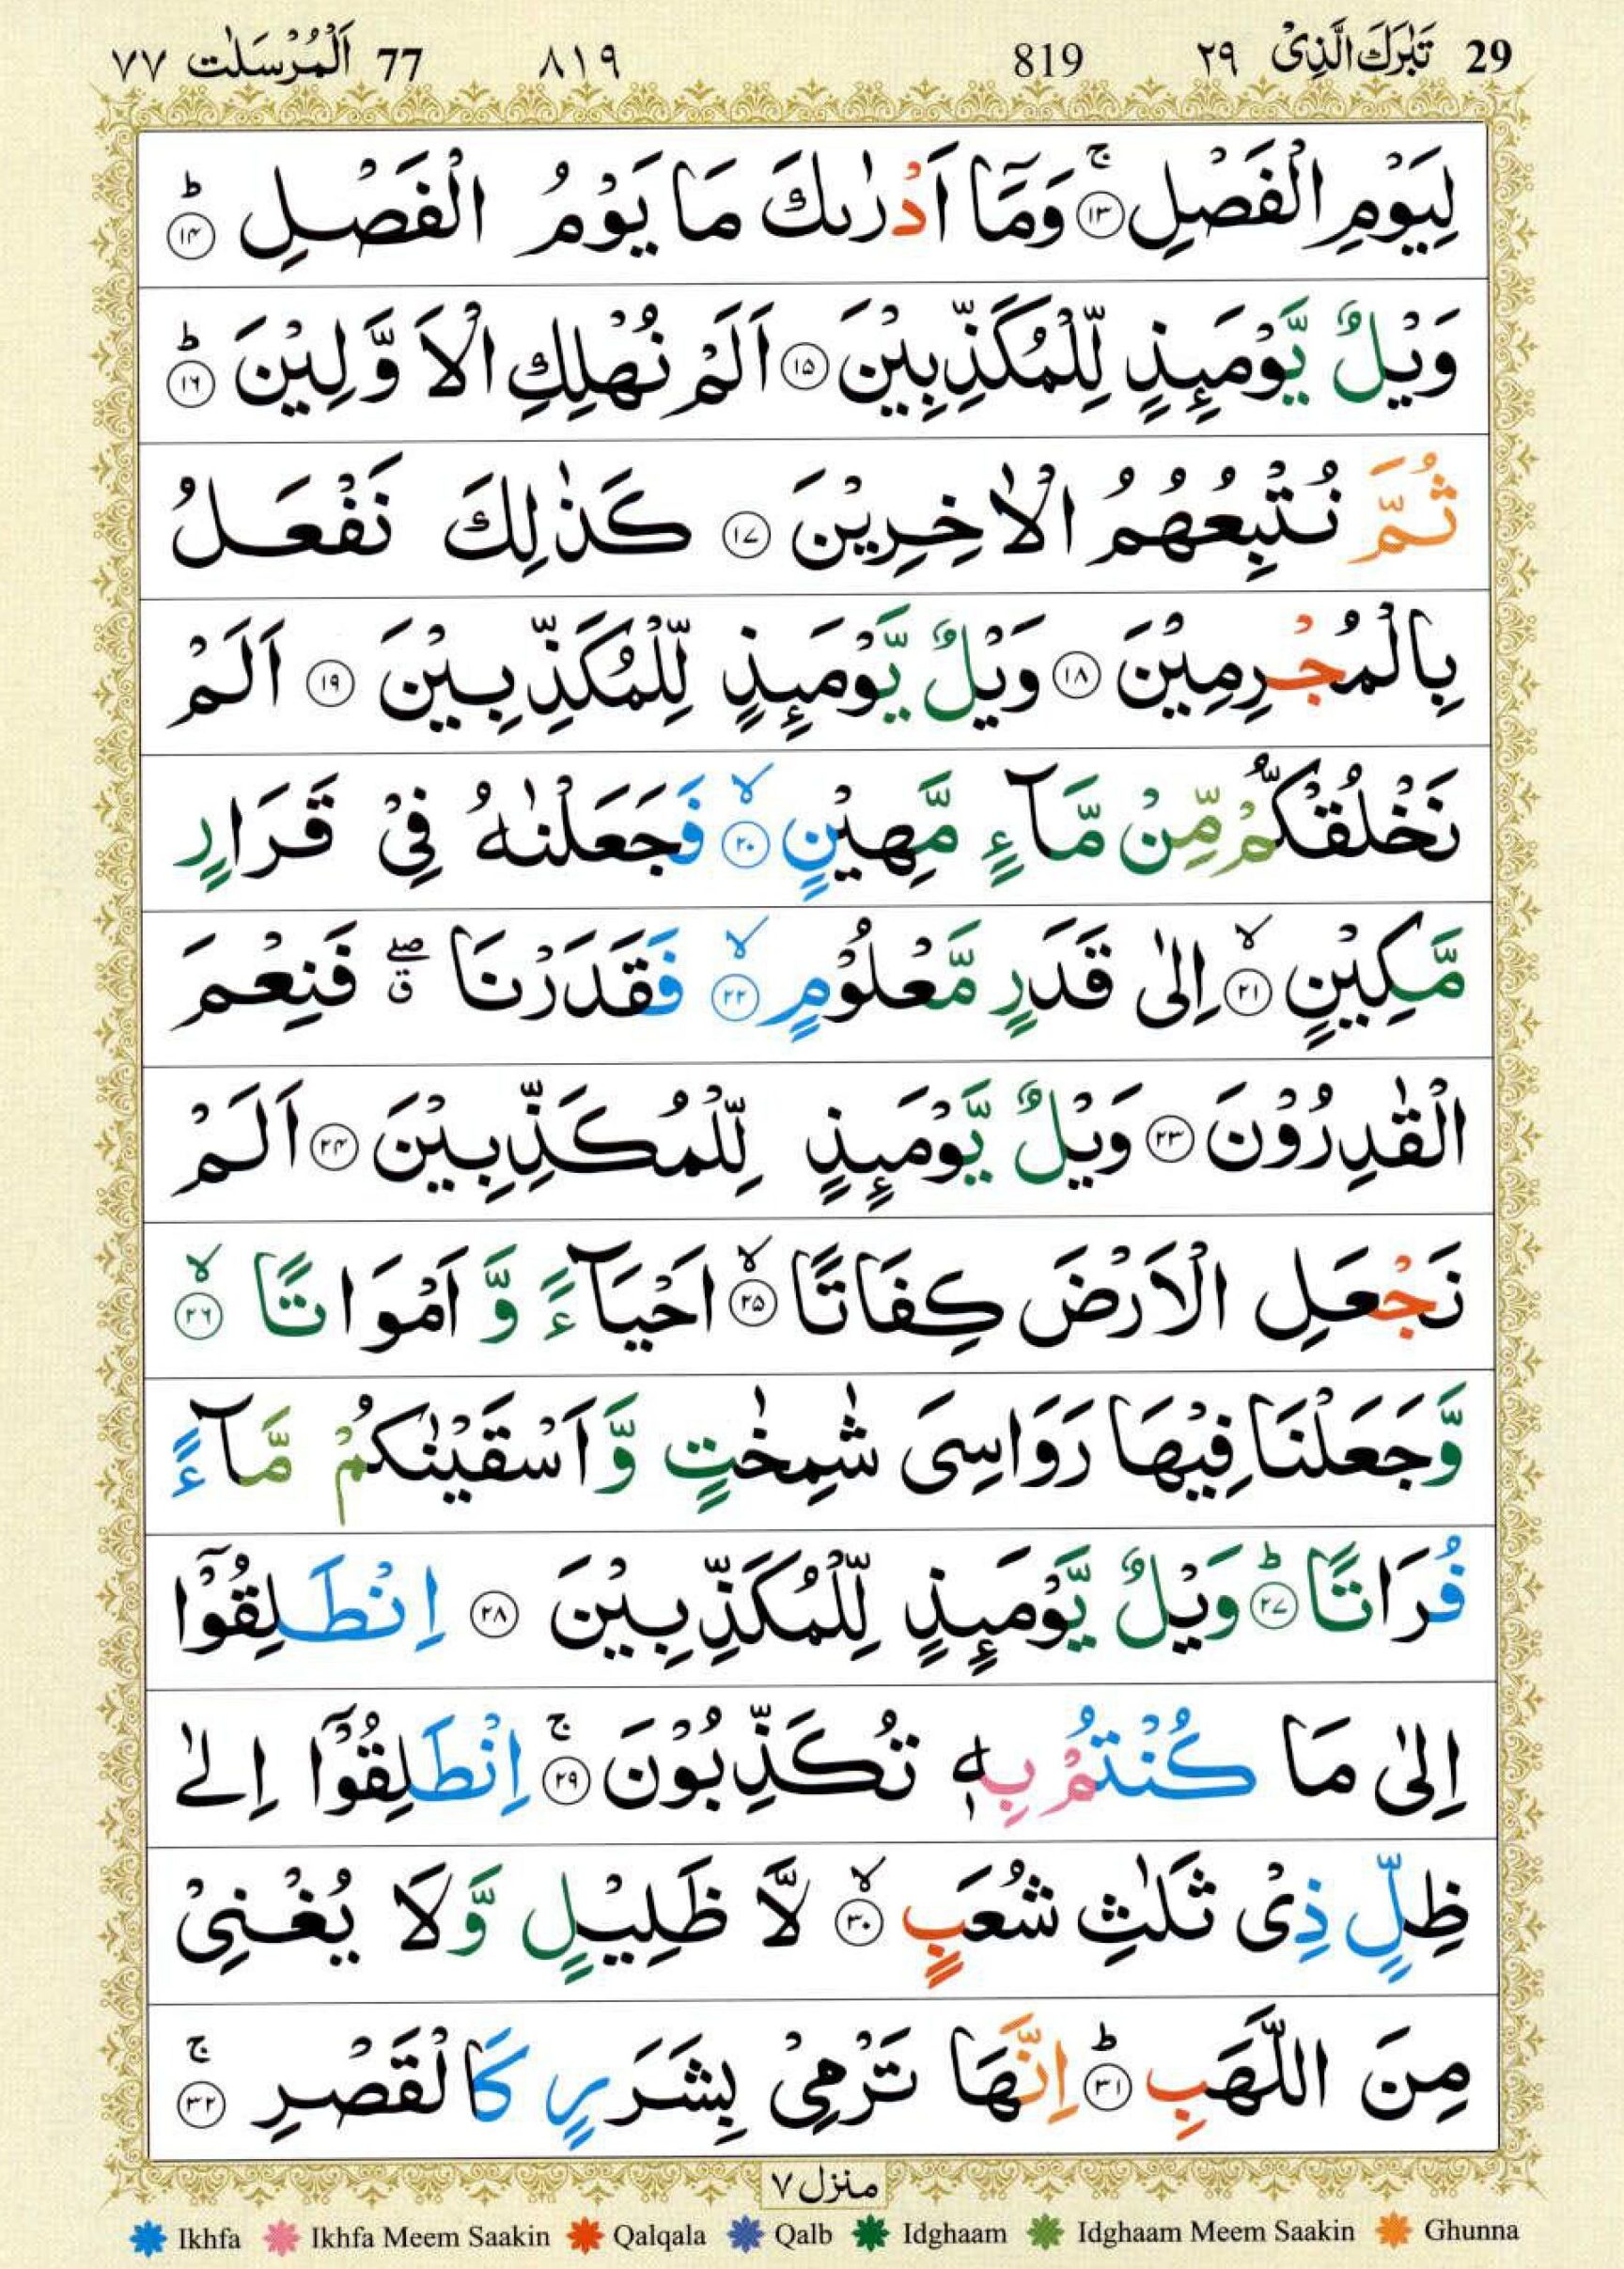 29 تَبٰرَكَ الَّذِیْ ۲۹ 819 ۸۱۹ 77 اَلْمُرْسَلٰت ۷۷
لِیَوْمِ الْفَصْلِ ۚ‏﴿۱۳﴾ وَمَاۤ اَدْرٰىكَ مَا یَوْمُ الْفَصْلِ ؕ‏﴿۱۴﴾
وَیْلٌ یَّوْمَىِٕذٍ لِّلْمُكَذِّبِیْنَ ﴿۱۵﴾ اَلَمْ نُهْلِكِ الْاَوَّلِیْنَ ؕ‏﴿۱۶﴾
ثُمَّ نُتْبِعُهُمُ الْاٰخِرِیْنَ ﴿۱۷﴾ كَذٰلِكَ نَفْعَلُ
بِالْمُجْرِمِیْنَ ﴿۱۸﴾ وَیْلٌ یَّوْمَىِٕذٍ لِّلْمُكَذِّبِیْنَ ﴿۱۹﴾ اَلَمْ
نَخْلُقْكُّمْ مِّنْ مَّآءٍ مَّهِیْنٍ ۙ‏﴿۲۰﴾ فَجَعَلْنٰهُ فِیْ قَرَارٍ
مَّكِیْنٍ ۙ‏﴿۲۱﴾ اِلٰی قَدَرٍ مَّعْلُوْمٍ ۙ‏﴿۲۲﴾ فَقَدَرْنَا ۖۗ فَنِعْمَ
الْقٰدِرُوْنَ ﴿۲۳﴾ وَیْلٌ یَّوْمَىِٕذٍ لِّلْمُكَذِّبِیْنَ ﴿۲۴﴾ اَلَمْ
نَجْعَلِ الْاَرْضَ كِفَاتًا ۙ‏﴿۲۵﴾ اَحْیَآءً وَّ اَمْوَاتًا ۙ‏﴿۲۶﴾
وَّجَعَلْنَا فِیْهَا رَوَاسِیَ شٰمِخٰتٍ وَّاَسْقَیْنٰكُمْ مَّآءً
فُرَاتًا ؕ‏﴿۲۷﴾ وَیْلٌ یَّوْمَىِٕذٍ لِّلْمُكَذِّبِیْنَ ﴿۲۸﴾ اِنْطَلِقُوْۤا
اِلٰی مَا كُنْتُمْ بِهٖ تُكَذِّبُوْنَ ۚ‏﴿۲۹﴾ اِنْطَلِقُوْۤا اِلٰی
ظِلٍّ ذِیْ ثَلٰثِ شُعَبٍ ۙ‏﴿۳۰﴾ لَّا ظَلِیْلٍ وَّلَا یُغْنِیْ
مِنَ اللَّهَبِ ؕ‏﴿۳۱﴾ اِنَّهَا تَرْمِیْ بِشَرَرٍ كَالْقَصْرِ ۚ‏﴿۳۲﴾
منزل ۷
Ikhfa Ikhfa Meem Saakin Qalqala Qalb Idghaam Idghaam Meem Saakin Ghunna